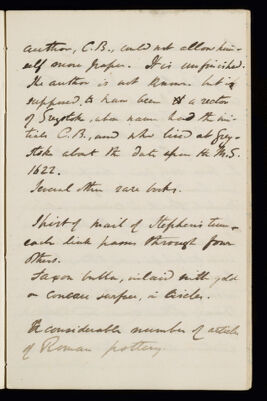 author, C.B., could not allow him-
self more paper. It is unfinished.
The author is not known but is
supposed to have been a rector
of Greystok, whose name had the ini-
tials C.B., and who lived at Grey-
stoke about the date upon the M.S.
1622.
Several other rare books.
Shirt of mail of Stephen's time -
each link passes through four
others.
Saxon buttn, inlaid with gold
on concave surface, in circles.
A considerable number of articles
of Roman pottery.